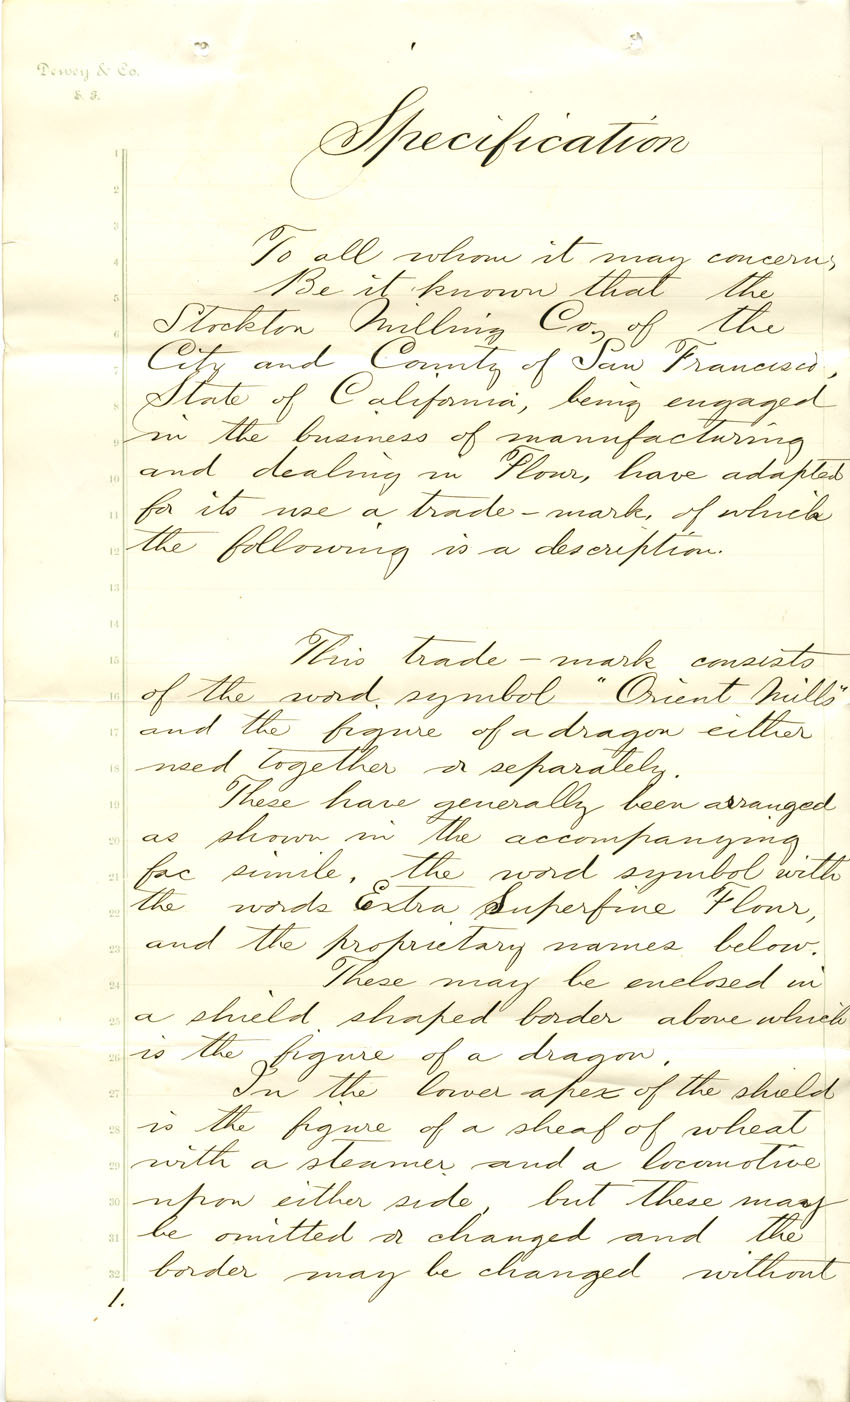 Dewey & Co.
S. F.
Specification
1
2
3
4 To all whom it may concern,
5 Be it known that the
6 Stockton Milling Co, of the
7 City and County of San Francisco,
8 State of California, being engaged
9 in the business of manufacturing
10 and dealing in Flour, have adapted
11 for its use a trade-mark, of which
12 the following is a description.
13
14
15 This trade-mark consists
16 of the word symbol "Orient Mills"
17 and the figure of a dragon either
18 used together or separately.
19 These have generally been arranged
20 as shown in the accompanying
21 fac simile, the word symbol with
22 the words Extra Superfine Flour,
23 and the proprietary names below.
24 These may be enclosed in
25 a shield shaped border above which
26 is the figure of a dragon.
27 In the lower apex of the shield
28 is the figure of a sheaf of wheat
29 with a steamer and a locomotive
30 upon either side, but these may
31 be omitted or changed and the
32 border may be changed without
1.